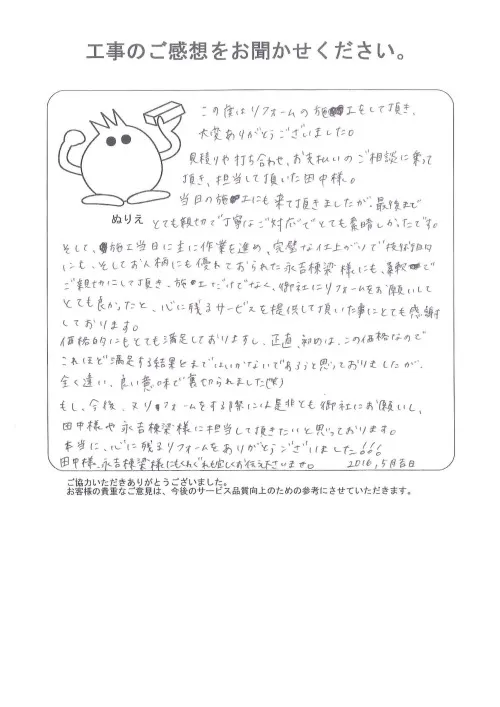 工事のご感想をお聞かせください。
この度はリフォームの施工をして頂き、
大変ありがとうございました。
見積りや打ち合わせ、お支払いのご相談に乗って
頂き、担当して頂いた田中様。
当日の施工にも来て頂きましたが、最後まで
とても親切で丁寧なご対応でとても素晴しかったです。
ぬりえ
そして、施工当日に主に作業を進め、完璧な仕上がりで技術的
にも、そしてお人柄にも優れておられた永吉棟梁様にも、柔軟で
ご親切にして頂き、施工だけでなく、御社にリフォームをお願いして
とても良かったと、心に残るサービスを提供して頂いた事にとても感謝
しております。
価格的にもとても満足しておりますし、正直、初めは、この価格なので
これほど満足する結果とまではいかないであろうと思っておりましたが、
全く違い、良い意味で裏切られました(笑)
もし、今後、又リフォームをする際には是非とも御社にお願いし、
田中様や永吉棟梁様に担当して頂きたいと思っております。
本当に、心に残るリフォームをありがとうございました!!!
田中様、永吉棟梁様にもくれぐれも宜しくお伝え下さいませ。 2016,5月 日
ご協力いただきありがとうございました。
お客様の貴重なご意見は、今後のサービス品質向上のための参考にさせていただきます。